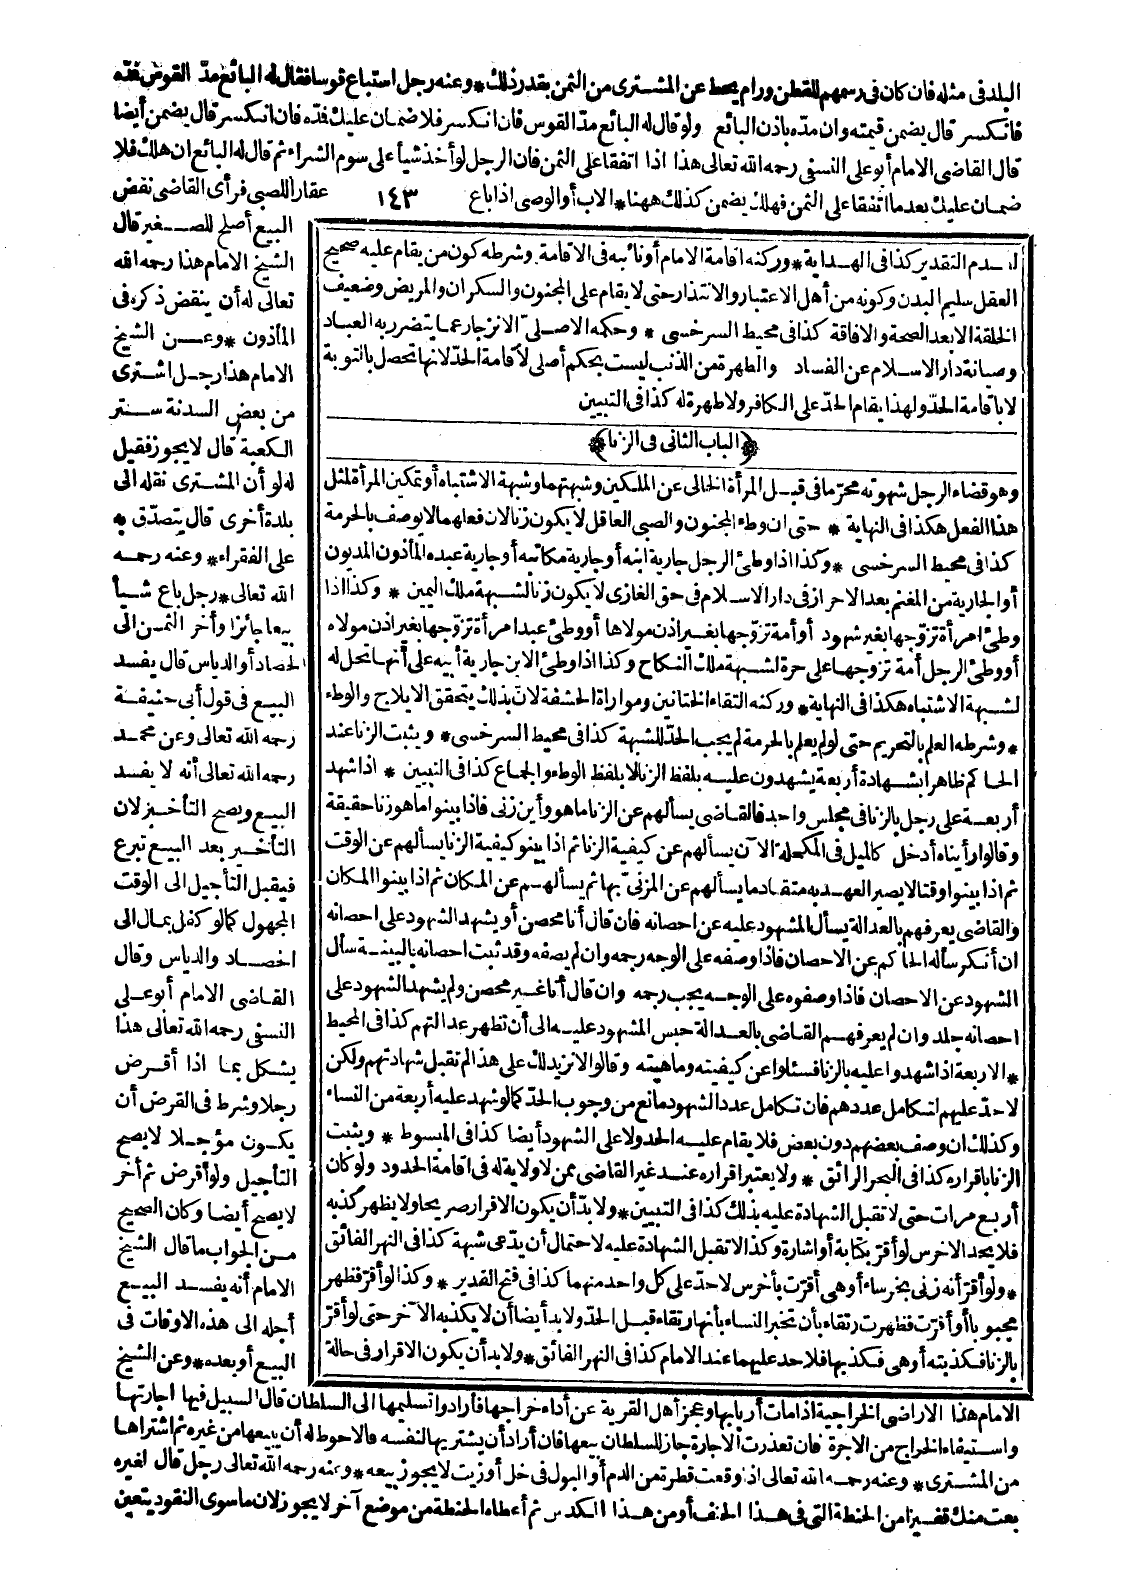 البلد فى مثله فان كان فى رسمهم للقطن ورام يحط عن المشترى من الثمن بقدر ذلك * وعنه رجل استباع قوسا فقال له البائع مدّ القوس فمدّه
فانكسر قال يضمن قيمته وان مدّه باذن البائع ولو قال له البائع مدّ القوس فان انكسر فلا ضمان عليك فدّه فان انكسر قال يضمن أيضا
قال القاضى الامام أبو على النسفى رحمه الله تعالى هذا اذا اتفقا على الثمن فان الرجل لو أخذ شيأ على سوم الشراء ثم قال له البائع ان هلك فلا
ضمان عليك بعدما اتفقا على الثمن فهلك يضمن كذلك ههنا * الاب أو الوصى اذا باع
١٤٣
عقار اللصبى فرأى القاضى نقض
البيع أصلح للصغير قال
الشيخ الامام هذا رحمه الله
تعالى له أن ينقض ذكره فى
المأذون * وعن الشيخ
الامام هذا رجل اشترى
من بعض السدنة ستر
الكعبة قال لا يجوز فقيل
له لو أن المشترى نقله الى
بلدة أخرى قال يتصدّق به
على الفقراء * وعنه رحمه
الله تعالى * رجل باع شيأ
بيعا جائزا وأخر الثمن الى
الحصاد أو الدياس قال يفسد
البيع فى قول أبى حنيفة
رحمه الله تعالى وعن محمد
رحمه الله تعالى أنه لا يفسد
البيع ويصح التأخير لان
التأخير بعد البيع تبرع
فيقبل التأجيل الى الوقت
المجهول كما لو كفل بمال الى
الحصاد والدياس وقال
القاضى الامام أبو على
النسفى رحمه الله تعالى هذا
يشكل بما اذا أقرض
رجلا وشرط فى القرض أن
يكون مؤجلا لا يصح
التأجيل ولو أقرض ثم أخر
لا يصح أيضا وكان الصحيح
من الجواب ما قال الشيخ
الامام أنه يفسد البيع
أجله الى هذه الاوقات فى
البيع أو بعده * وعن الشيخ
لعدم التقدير كذا فى الهداية * وركنه اقامة الامام أو نائبه فى الاقامة وشرطه كون من يقام عليه صحيح
العقل سليم البدن وكونه من أهل الاعتبار والانتذار حتى لا يقام على المجنون والسكران والمريض وضعيف
الخلقة الا بعد الصحة والافاقة كذا فى محيط السرخسى * وحكمه الاصلىّ الانزجار عما يتضرر به العباد
وصيانة دار الاسلام عن الفساد والطهرة من الذنب ليست بحكم أصلى لاقامة الحدّ لانها تحصل بالتوبة
لا باقامة الحدّ ولهذا يقام الحدّ على الكافر ولا طهرة له كذا فى التبيين
﴿الباب الثانى فى الزنا﴾
وهو قضاء الرجل شهوته محرّما فى قبل المرأة الخالى عن الملكين وشبهتهما وشبهة الاشتباه أو تمكين المرأة لمثل
هذا الفعل هكذا فى النهاية * حتى ان وطء المجنون والصبى العاقل لا يكون زنا لان فعلهما لا يوصف بالحرمة
كذا فى محيط السرخسى * وكذا اذا وطئ الرجل جارية ابنه أو جارية مكاتبه أو جارية عبده المأذون المديون
أو الجارية من المغنم بعد الاحراز فى دار الاسلام فى حق الغازى لا يكون زنا لشبهة ملك اليمين * وكذا اذا
وطئ امرأة تزوّجها بغير شهود أو أمة تزوّجها بغير اذن مولاها أو وطئ عبد امرأة تزوّجها بغير اذن مولاه
أو وطئ الرجل أمة تزوجها على حرة لشبهة ملك النكاح وكذا اذا وطئ الابن جارية أبيه على أنها تحل له
لشبهة الاشتباه هكذا فى النهاية * وركنه التقاء الختانين ومواراة الحشفة لانّ بذلك يتحقق الايلاج والوطء
* وشرطه العلم بالتحريم حتى لو لم يعلم بالحرمة لم يجب الحدّ للشبهة كذا فى محيط السرخسى * ويثبت الزنا عند
الحاكم ظاهرا بشهادة أربعة يشهدون عليه بلفظ الزنا لا بلفظ الوطء والجماع كذا فى التبيين * اذا شهد
أربعة على رجل بالزنا فى مجلس واحد فالقاضى يسألهم عن الزنا ما هو وأين زنى فاذا بينوا ما هو زنا حقيقة
وقالوا رأيناه أدخل كالميل فى المكحلة الآن يسألهم عن كيفية الزنا ثم اذا بينو كيفية الزنا يسألهم عن الوقت
ثم اذا بينوا وقتا لا يصير العهد به متقادما يسألهم عن المزنىّ بها ثم يسألهم عن المكان ثم اذا بينوا المكان
والقاضى يعرفهم بالعدالة يسأل المشهود عليه عن احصانه فان قال أنا محصن أو يشهد الشهود على احصانه
ان أنكر سأله الحاكم عن الاحصان فاذا وصفه على الوجه رجمه وان لم يصفه وقد ثبت احصانه بالبينة سأل
الشهود عن الاحصان فاذا وصفوه على الوجه يجب رجمه وان قال أنا غير محصن ولم يشهد الشهود على
احصانه جلد وان لم يعرفهم القاضى بالعدالة حبس المشهود عليه الى أن تظهر عدالتهم كذا فى المحيط
* الاربعة اذا شهدوا عليه بالزنا فسئلوا عن كيفيته وماهيته وقالوا لا نزيد لك على هذا لم تقبل شهادتهم ولكن
لا حدّ عليهم لتكامل عددهم فان تكامل عدد الشهود مانع من وجوب الحدّ كما لو شهد عليه أربعة من النساء
وكذلك ان وصف بعضهم دون بعض فلا يقام عليه الحد ولا على الشهود أيضا كذا فى المبسوط * ويثبت
الزنا باقراره كذا فى البحر الرائق * ولا يعتبر اقراره عند غير القاضى ممن لا ولاية له فى اقامة الحدود ولو كان
أربع مرات حتى لا تقبل الشهادة عليه بذلك كذا فى التبيين * ولا بدّ أن يكون الاقرار صريحا ولا يظهر كذبه
فلا يحد الاخرس لو أقرّ بكتابة أو اشارة وكذا لا تقبل الشهادة عليه لاحتمال أن يدّعى شبهة كذا فى النهر الفائق
* ولو أقرّ أنه زنى بخرساء أو هى أقرّت بأخرس لا حدّ على كل واحد منهما كذا فى فتح القدير * وكذا لو أقرّ فظهر
مجبوبا أو أقرّت فظهرت رتقاء بأن تخبر النساء بأنها رتقاء قبل الحدّ ولا بد أيضا أن لا يكذبه الآخر حتى لو أقرّ
بالزنا فكذبته أو هى فكذبها فلا حد عليهما عند الامام كذا فى النهر الفائق * ولا بد أن يكون الاقرار فى حالة
الامام هذا الاراضى الخراجية اذا مات أربابها وعجز أهل القرية عن أداء خراجها فأرادوا تسليمها الى السلطان قال السبيل فيها اجارتها
واستيفاء الخراج من الاجرة فان تعذرت الاجارة جاز للسلطان بيعها فان أراد أن يشتريها لنفسه فالاحوط له أن يبيعها من غيره ثم اشتراها
من المشترى * وعنه رحمه الله تعالى اذا وقعت قطرة من الدم أو البول فى خل أو زيت لا يجوز بيعه * وعنه رحمه الله تعالى رجل قال لغيره
بعت منك قفيزا من الحنطة التى فى هذا أو من هذا الكدس ثم أعطاه الحنطة من موضع آخر لا يجوز لان ما سوى النقود يتعين